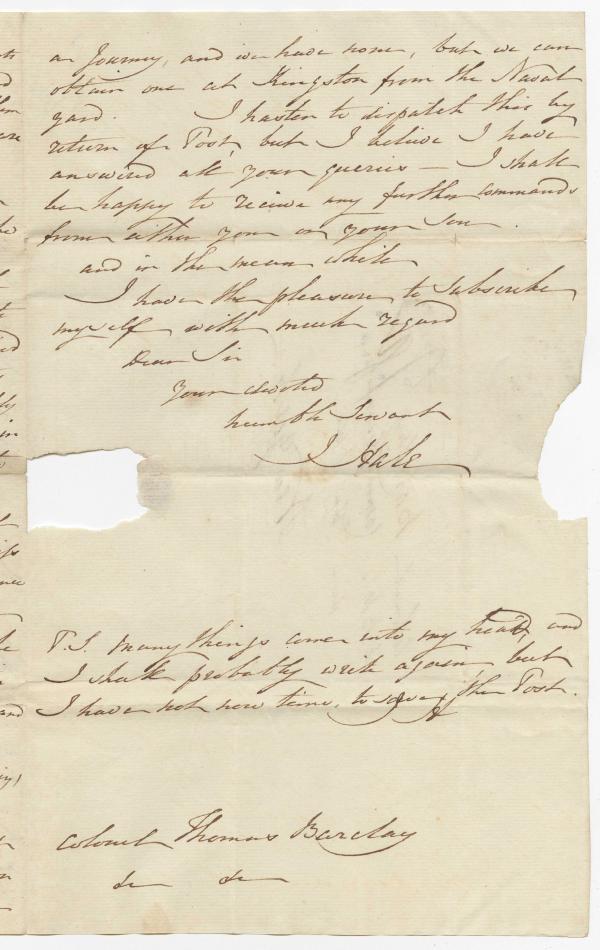 a Journey, and we have none, but we can
obtain one at Kingston from the Naval
yard. I hasten to dispatch this by
return of Post, but I believe I have
answered all your queries – I shall
be happy to receive any further commands
from either you or your Son.
and in the mean while
I have the pleasure to subscribe
myself with much regard
Dear Sir
your devoted
humble Servant
J Hale
P.S. many things come into my head, and
I shall probably write again but
I have not now time, to save the Post.
Colonel Thomas Barclay
&c &c